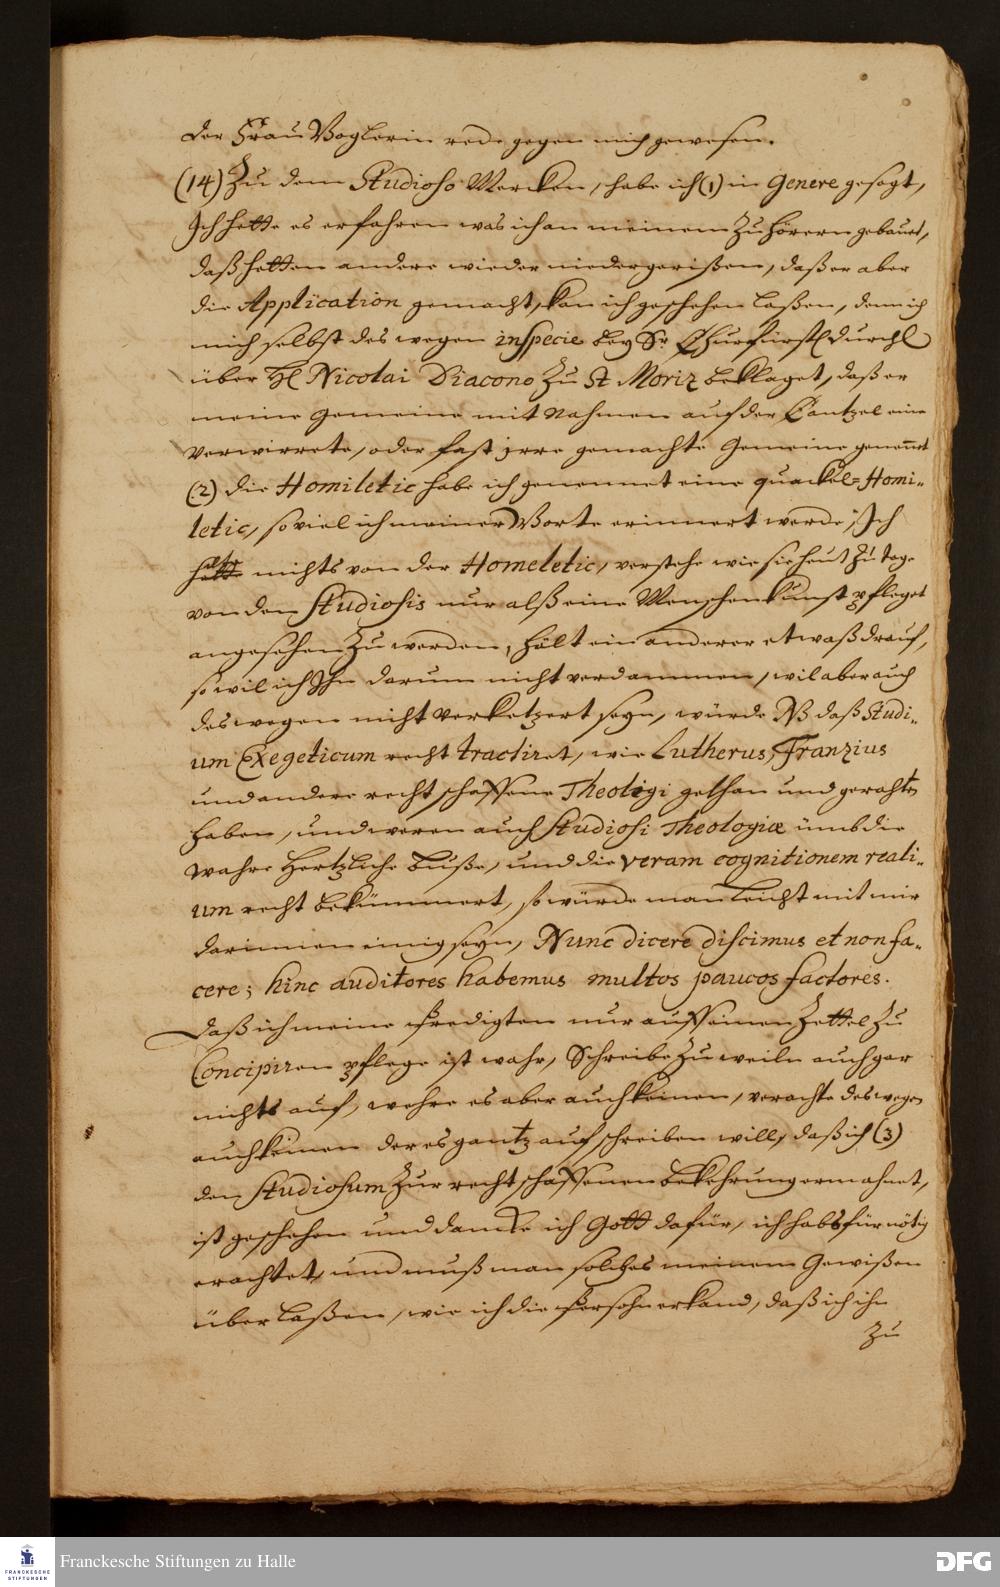 der Frau Voglerin rede gegen mich gewesen.
(14) Zu dem Studioso Mercken, habe ich (1) in Genere gesagt,
Ich hette es erfahren was ich an meinem Zuhörern gebauet,
daß hetten andere wieder niedergerißen, daß er aber
die Application gemacht, kan ich geschehen laßen, denn ich
mich selbst deswegen in specie bey Sr. Churfürstl durchl
über H Nicolai Diacono Zu St Moriz beklaget, daß er
meine Gemeine mit Nahmen auf der Cantzel eine
Verwirrete, oder fast irre gemachte Gemeine genennet
(2) die Homiletic habe ich genennet eine quackel=Homi-
letic, so viel ich meiner Worte erinnert werde, Ich
halte nichts von der Homeletic, verstehe wie sie heut zu tage
von den Studiosis nur alß eine Menschen Kunst pfleget
angesehen Zu werden, hält ein anderer etwaß drauf,
so wil ich Ihn darum nicht verdammen, wil aber auch
deswegen nicht verketzert seyn, würde NB daß Studi-
um Exegeticum recht tractiret, wie Lutherus, Franzius
und andere rechtschaffene Theologi gethan und gerahten
haben, und weren auch Studiosi Theologiæ ümb die
wahre Hertzliche Buße, und die veram cognitionem reali-
um recht bekümmert, so würde man leicht mit mir
darinnen einig seyn, Nunc dicere discimus et non fa-
cere; hinc auditores habemus multos paucos factores.
Daß ich meine Predigten nur auff einen Zettel Zu
Concipiren pflege ist wahr, Schreibe Zu weiln auch gar
nichts auf, wehre es aber auch keinen, verachte deswegen
auch keinen der es gantz auf schreiben will, daß ich (3)
den Studiosum Zur rechtschaffenen bekehrung ermahnet,
ist geschehen und dancke ich Gott dafür, ich habs für nötig
erachtet, und muß man solches meinem Gewißen
über laßen, wie ich die Persohn erkand, daß ich ihn
Zu
FRANCKESCHE STIFTUNGEN
Franckesche Stiftungen zu Halle
DFG